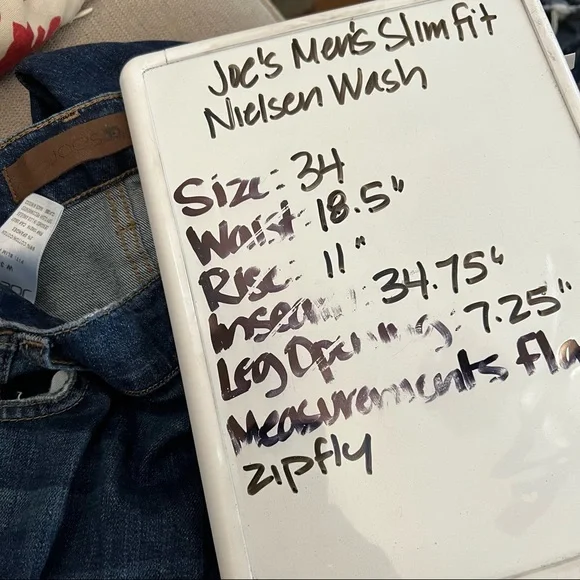 Joe's Men's Slim Fit
Nielsen Wash
Size: 34
Waist: 18.5"
Rise: 11"
Inseam: 34.75"
Leg Opening: 7.25"
Measurements fla
zipfly
JOE'S